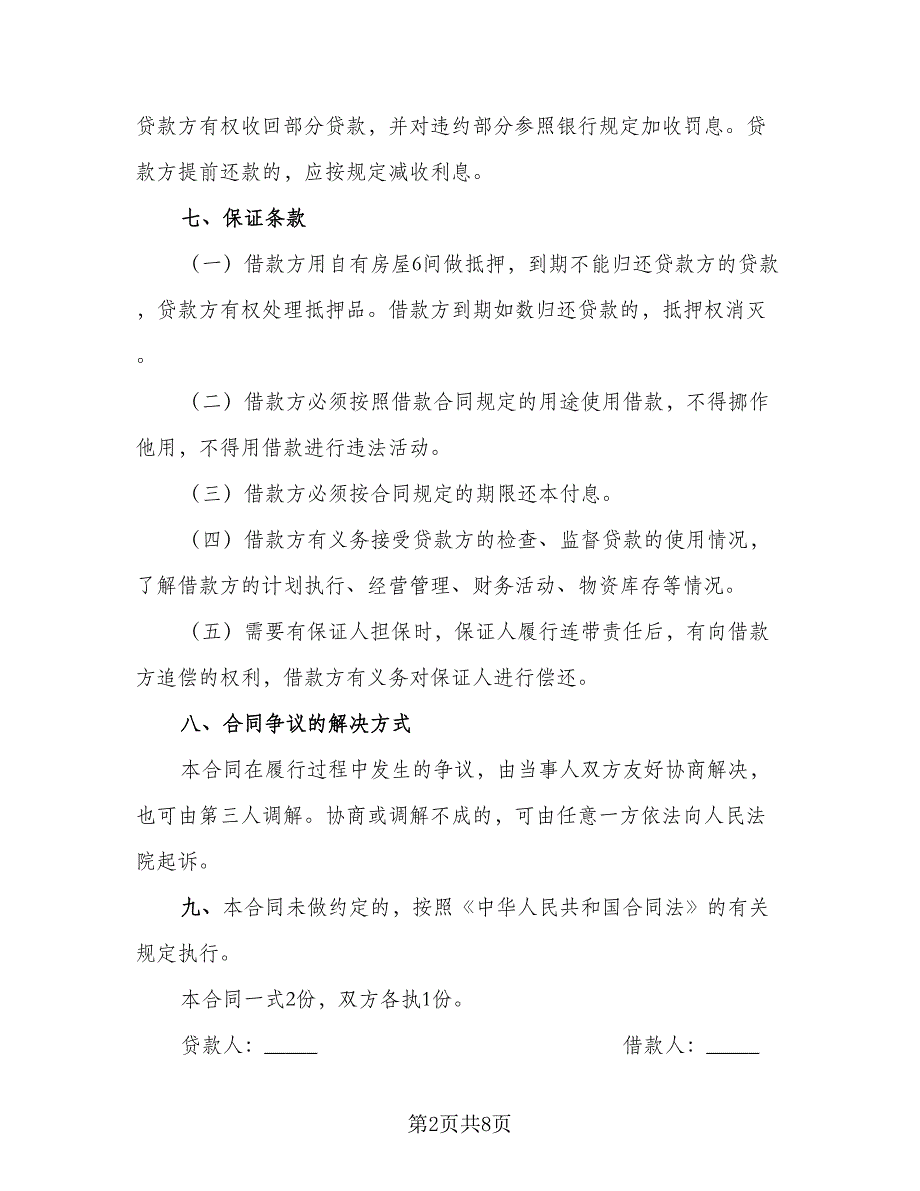 贷款方有权收回部分贷款，并对违约部分参照银行规定加收罚息。贷
款方提前还款的，应按规定减收利息。
七、保证条款
（一）借款方用自有房屋6间做抵押，到期不能归还贷款方的贷款
，贷款方有权处理抵押品。借款方到期如数归还贷款的，抵押权消灭
。
（二）借款方必须按照借款合同规定的用途使用借款，不得挪作
他用，不得用借款进行违法活动。
（三）借款方必须按合同规定的期限还本付息。
（四）借款方有义务接受贷款方的检查、监督贷款的使用情况，
了解借款方的计划执行、经营管理、财务活动、物资库存等情况。
（五）需要有保证人担保时，保证人履行连带责任后，有向借款
方追偿的权利，借款方有义务对保证人进行偿还。
八、合同争议的解决方式
本合同在履行过程中发生的争议，由当事人双方友好协商解决，
也可由第三人调解。协商或调解不成的，可由任意一方依法向人民法
院起诉。
九、本合同未做约定的，按照《中华人民共和国合同法》的有关
规定执行。
本合同一式2份，双方各执1份。
贷款人：_____ 借款人：_____
第2页共8页